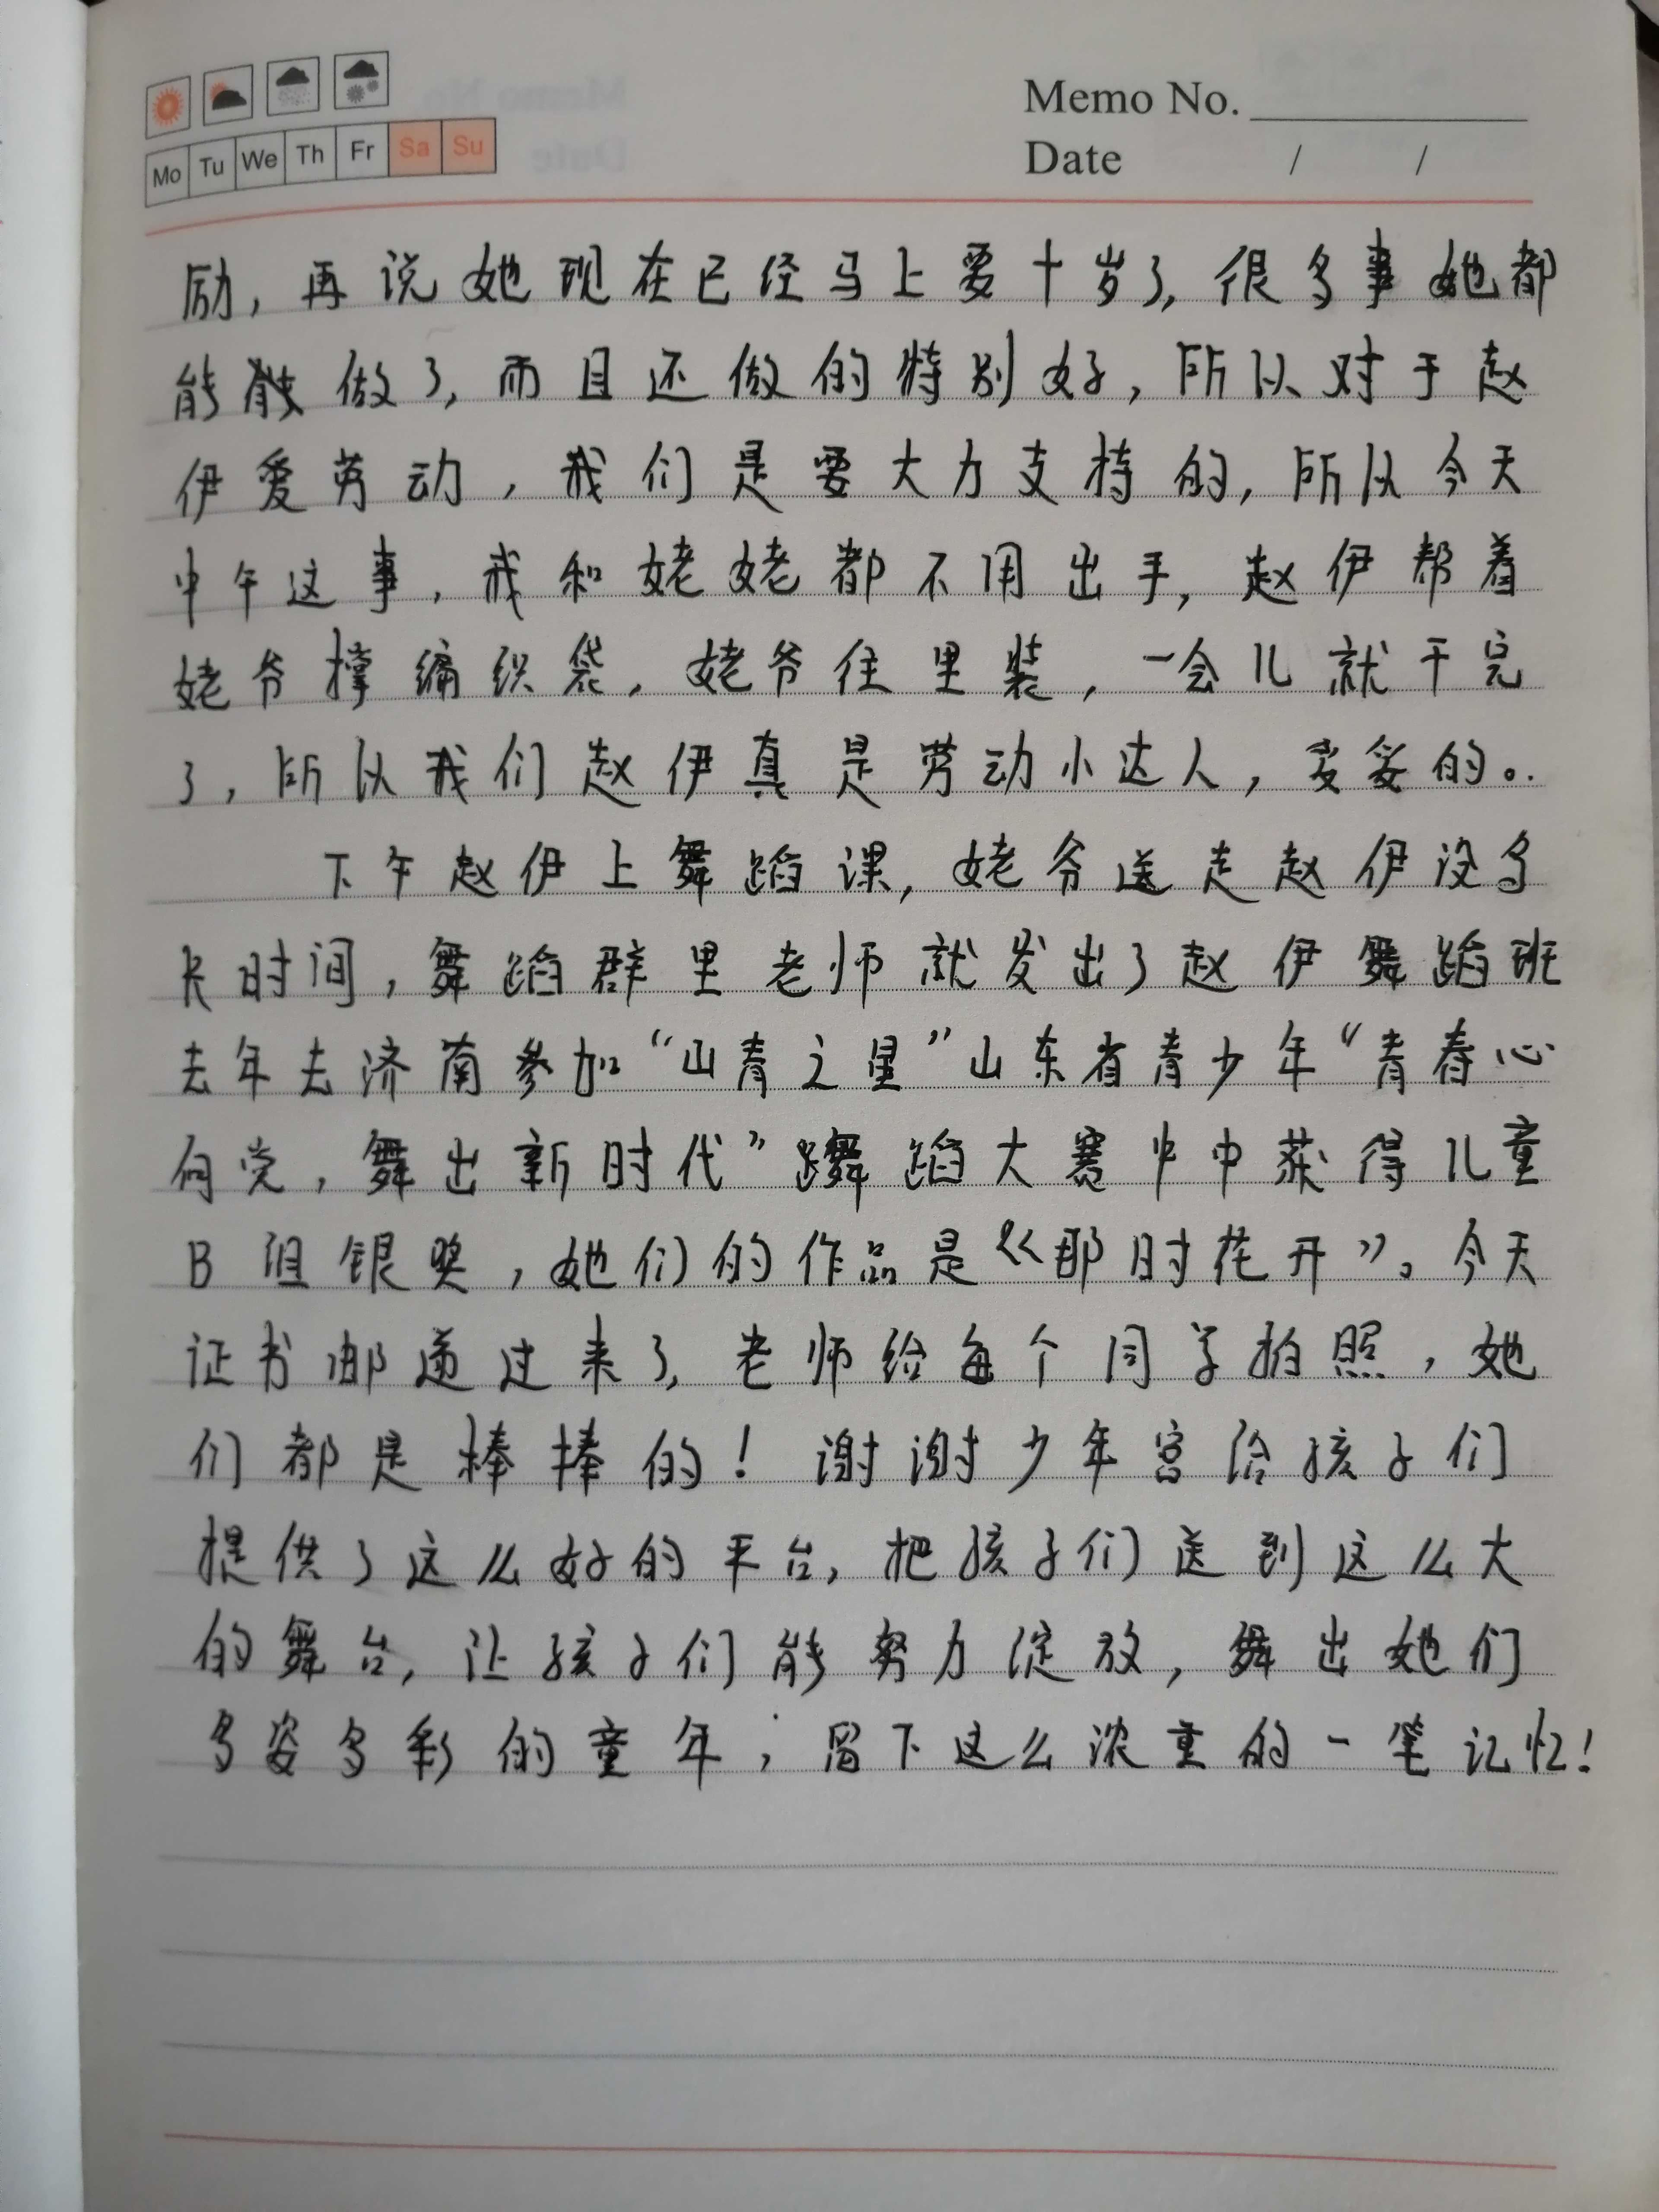 Memo No.
Date / /
Mo Tu We Th Fr Sa Su
励，再说她现在已经马上要十岁了，很多事她都
能做了，而且还做的特别好，所以对于赵
伊爱劳动，我们是要大力支持的，所以今天
中午这事，我和姥姥都不用出手，赵伊帮着
姥爷撑编织袋，姥爷往里装，一会儿就干完
了，所以我们赵伊真是劳动小达人，妥妥的。
下午赵伊上舞蹈课，姥爷送走赵伊没多
长时间，舞蹈群里老师就发出了赵伊舞蹈班
去年去济南参加“山青之星”山东省青少年“青春心
向党，舞出新时代”舞蹈大赛中中获得儿童
B组银奖，她们的作品是《那时花开》。今天
证书邮递过来了，老师给每个同学拍照，她
们都是棒棒的！谢谢少年宫给孩子们
提供了这么好的平台，把孩子们送到这么大
的舞台，让孩子们能努力绽放，舞出她们
多姿多彩的童年；留下这么浓重的一笔记忆！